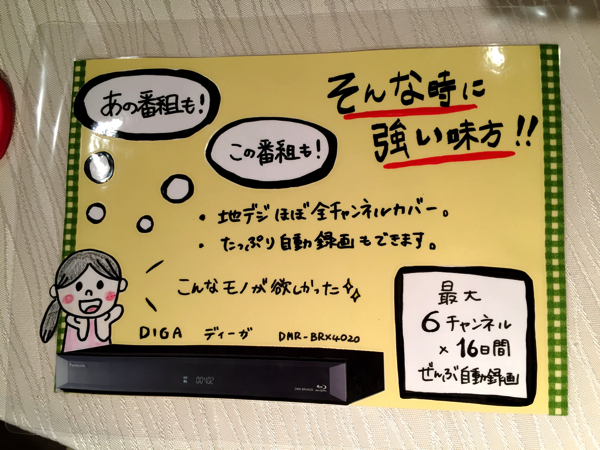 あの番組も!
この番組も!
そんな時に
強い味方!!
・地デジほぼ全チャンネルカバー。
・たっぷり自動録画もできます。
こんなモノが欲しかった
DIGA ディーガ DMR-BRX4020
最大
6チャンネル
×16日間
ぜんぶ自動録画
Panasonic